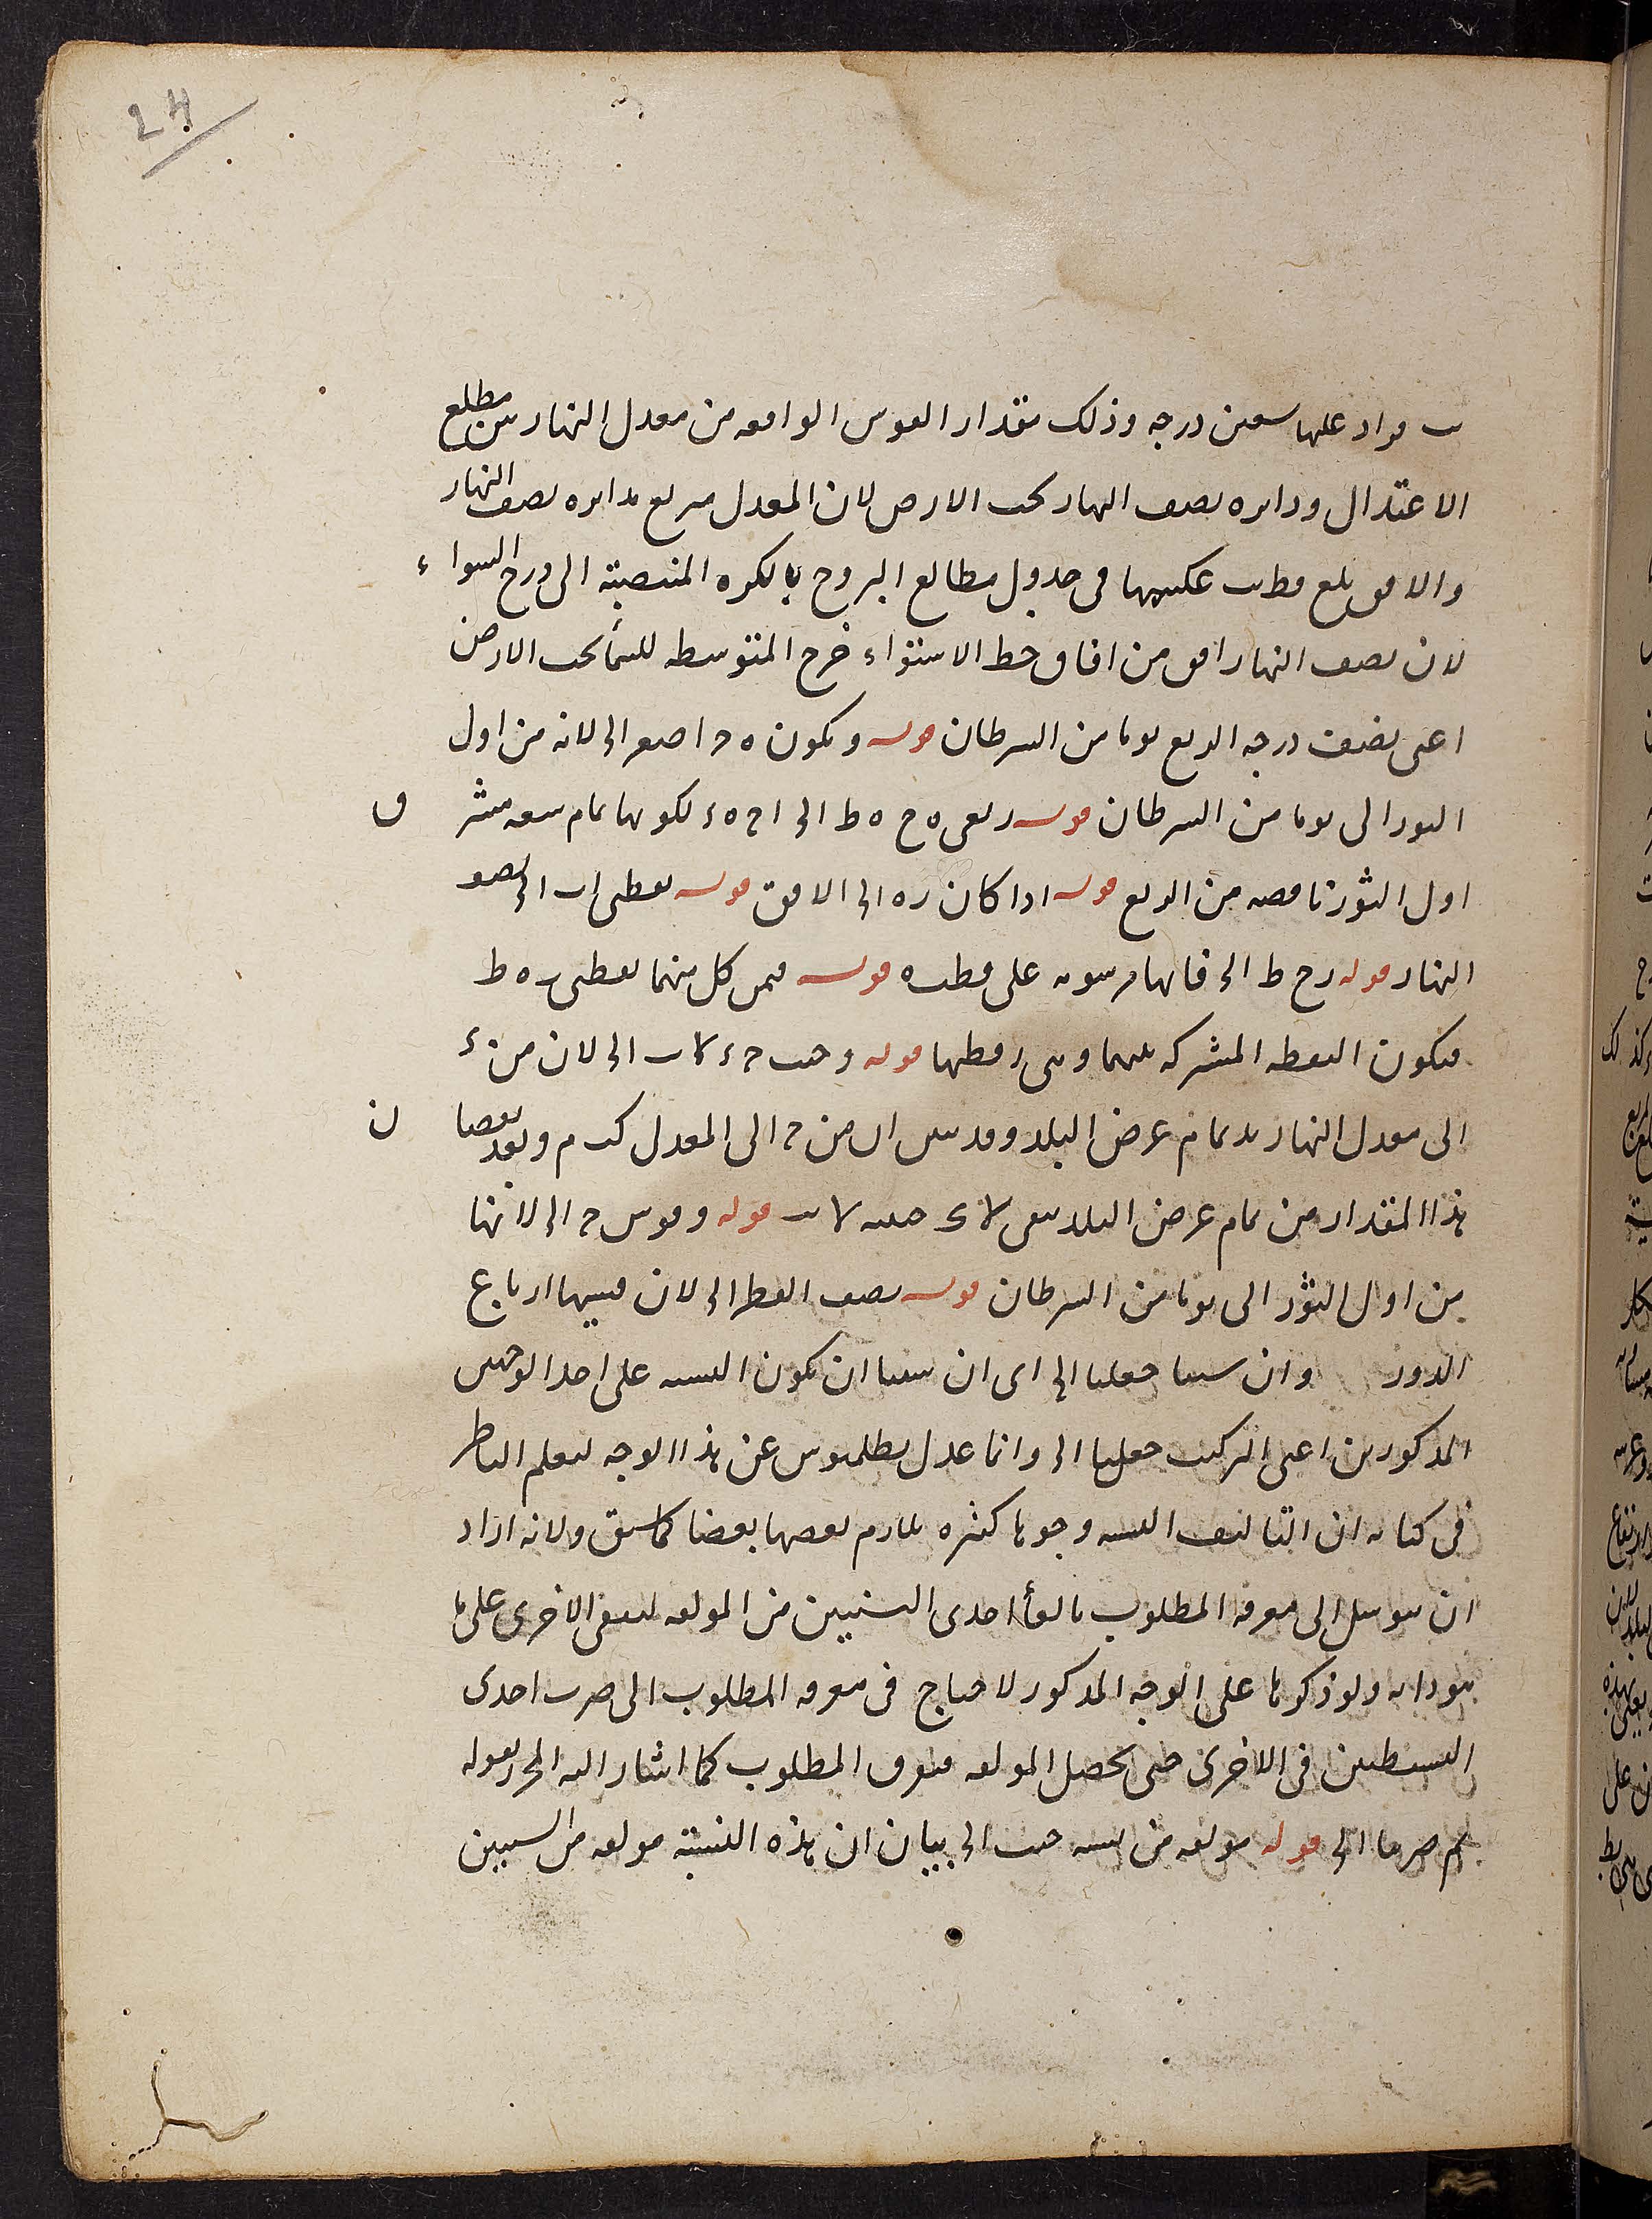 24
ىب فزاد عليها تسعين درجه وذلك مقدار القوس الواقعه من معدل النهار بين مطلع
الاعتدال ودايره نصف النهار تحت الارض لان المعدل يربع بدايره نصف النهار
والافق بلغ قط ىب عكسها فى جدول مطالع البروج بالكره المنتصبة الى درج السواء
لان نصف النهار افق من افاق خط الاستواء خرج المتوسطه للسما تحت الارض
اعنى نصف درجه الربع يوما من السرطان قوله ويكون ه ح اصغر الى لانه من اول
الثور الى يوما من السرطان قوله ربعى ه ح ه ط الى ا ح ه ء لكونها تمام سعه مشرق
اول الثور ناقصه من الربع قوله اذا كان ره الى الافق قوله نقطتى اب الى نصف
النهار قوله رح ط الى فانها مرسومه على قطب ه قوله فمن كل منهما نقطتى ه ط
فيكون النقطه المشتركه بينهما وهى ر قطبها قوله وجيب ح ء لا ىب الى لان من ء
الى معدل النهار ىد تمام عرض البلد وقد تبين ان من ح الى المعدل كب م وبعد نقصان
هذا المقدار من تمام عرض البلد يبقى لا ى جيبه لا ىب قوله وقوس ح الى لانها
من اول الثور الى يوما من السرطان قوله نصف القطر الى لان قسيها ارباع
الدور وان شينا جعلنا الى اى ان شينا ان يكون النسبه على احد الوجهين
المذكورين اعنى التركيب جعلنا الى وانما عدل بطلميوس عن هذا الوجه ليعلم الناظر
فى كتابه ان لتاليف النسبه وجوها كثيره يلازم بعضها بعضا كما سبق ولانه اراد
ان يتوصل الى معرفه المطلوب بالقا احدى النسبتين من المولفه ليبقى الاخرى على ما
هو دابه ولو ذكرها على الوجه المذكور لاحتاج فى معرفه المطلوب الى ضرب احدى
البسيطتين فى الاخرى حتى يحصل المولفه فيعرف المطلوب كما اشار اليه المحرر بقوله
ثم ضربنا الى قوله مولفه من نسبه جيب الى بيان ان هذه النسبة مولفه من النسبتين